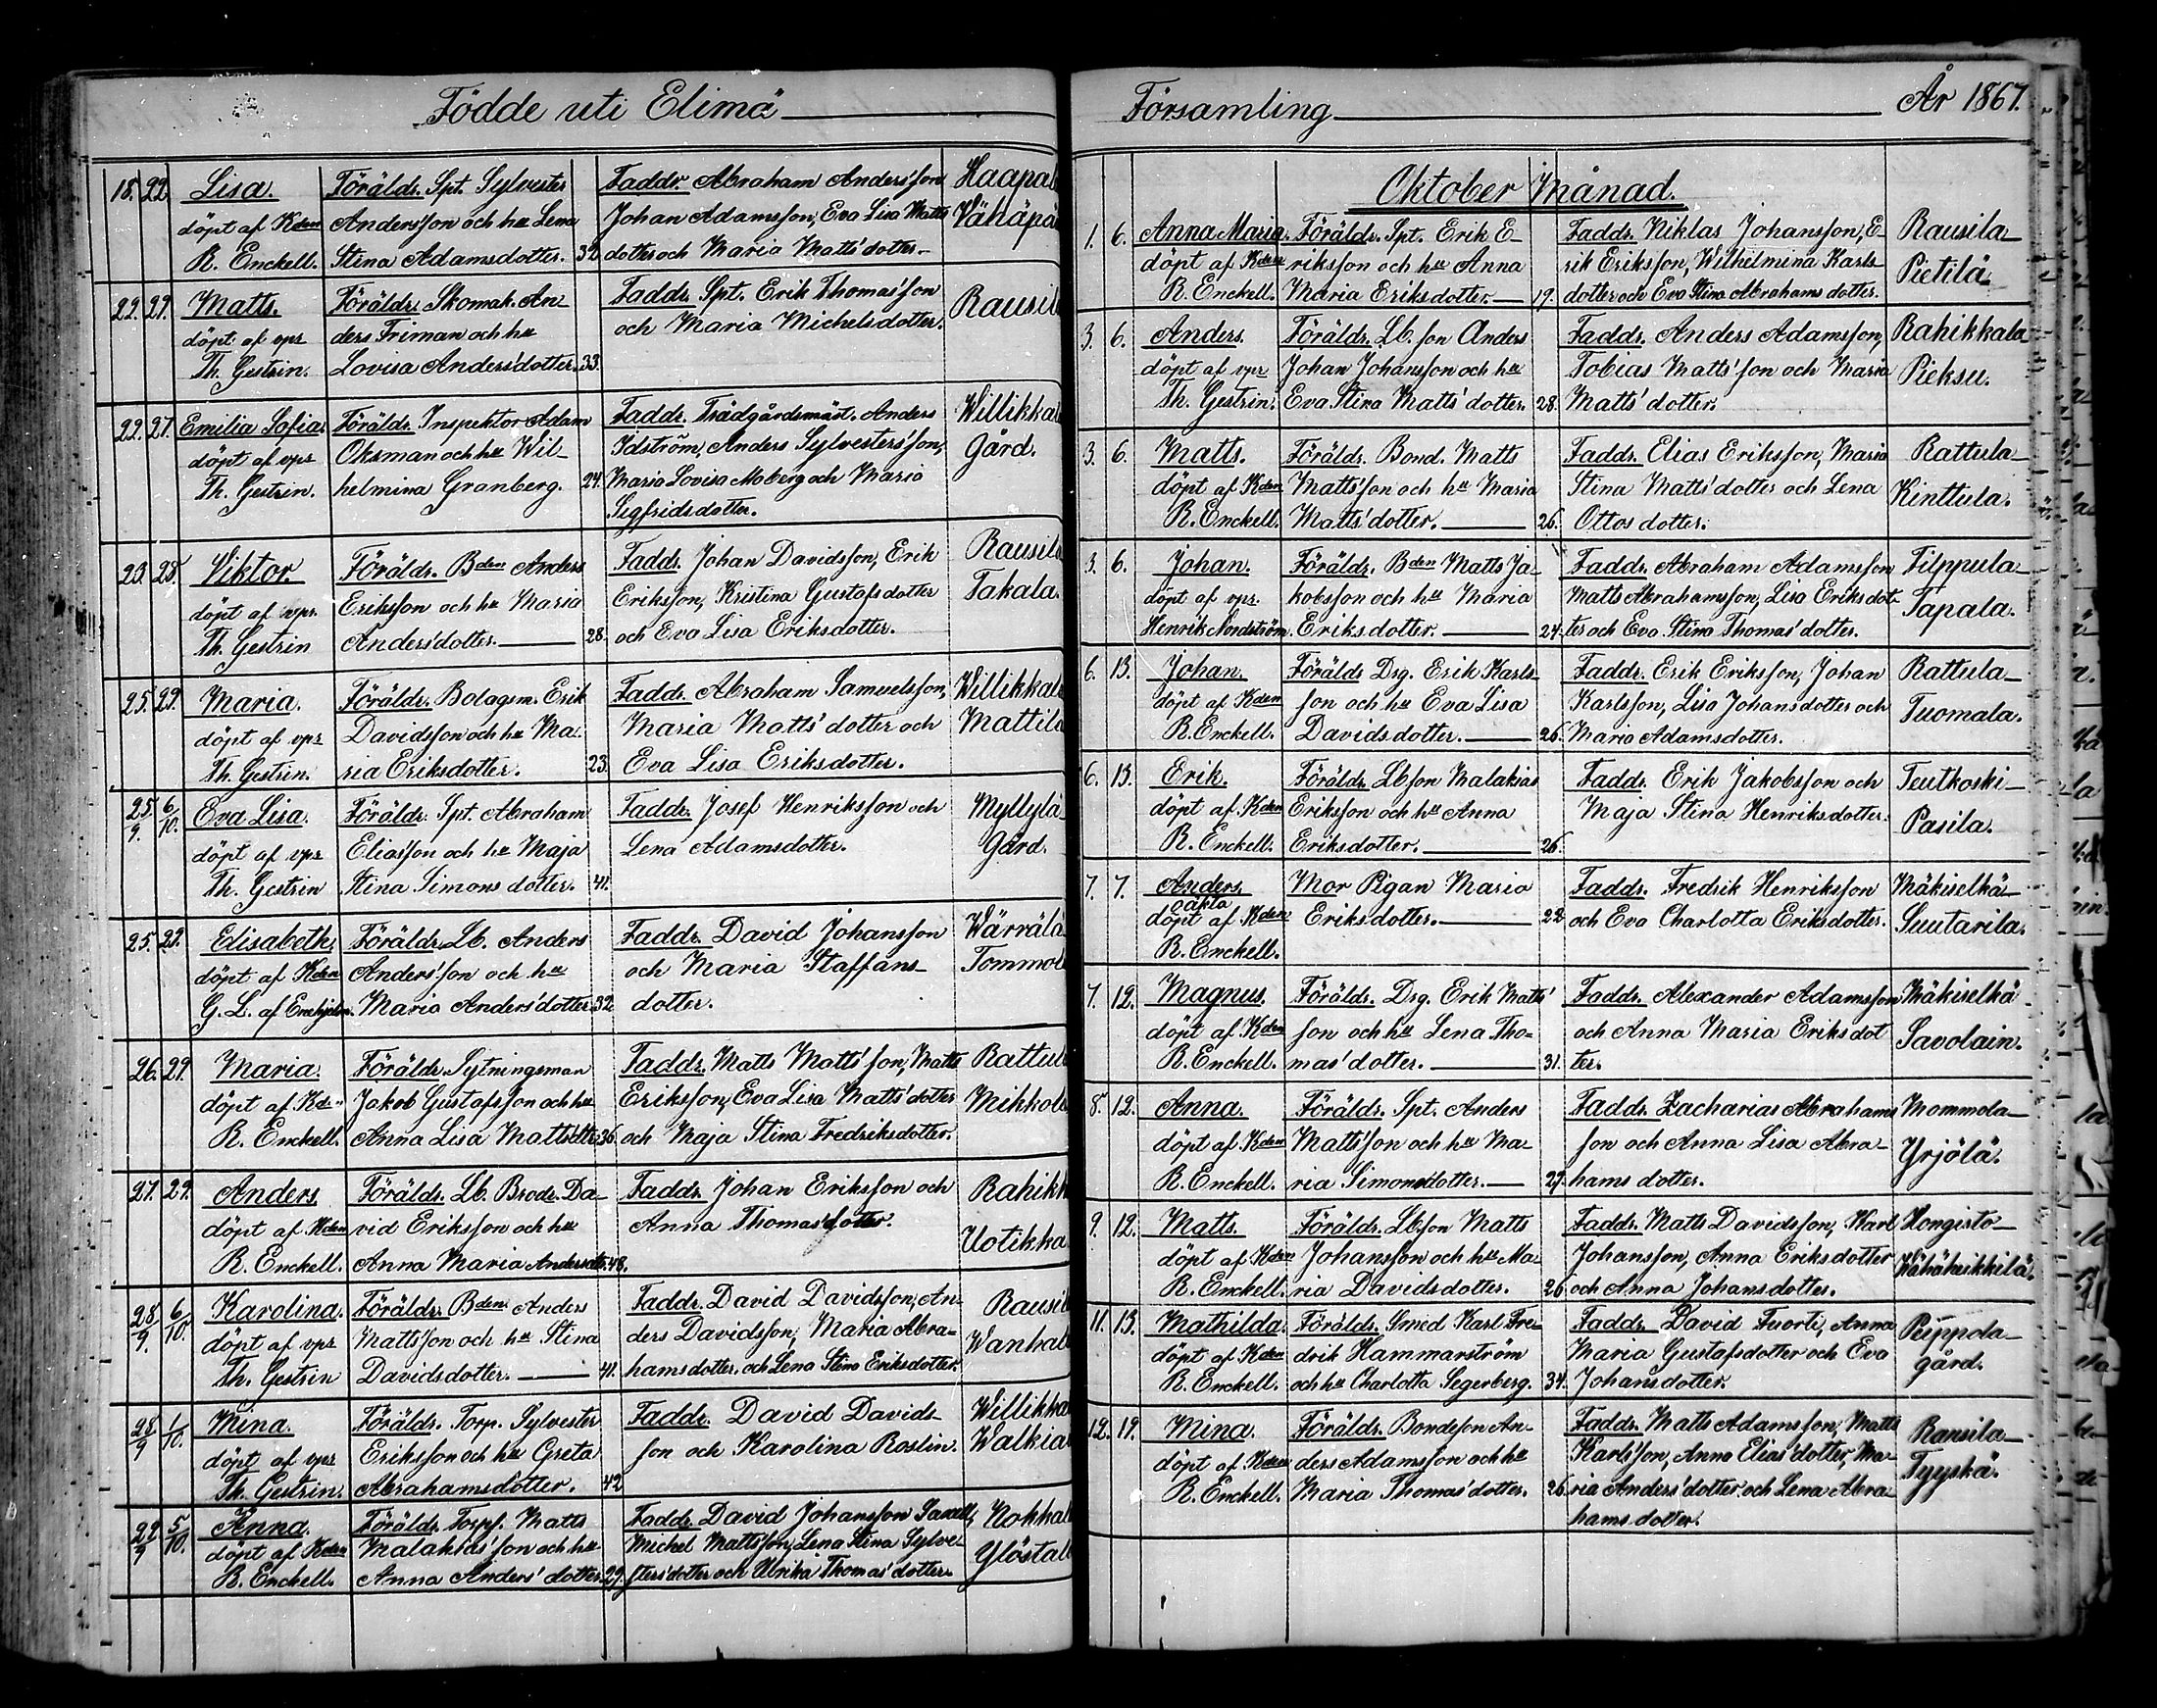 Födde uti Elimä
18. 22. Lisa. Föräldr. Spt. Sylvester Faddr. Abraham Anders'son Haapal
döpt af Kden Andersson och hu Lena Johan Adamsson, Eva Lisa Matts Vähäpä
R. Enckell. Stina Adamsdotter. 32 dotter och Maria Matts'dotter.
22. 29. Matts. Föräldr. Skomak. An- Faddr. Spt. Erik Thomas'son Rausil
döpt af vpr ders Friman och hu och Maria Michelsdotter.
Th. Gestrin. Lovisa Anders'dotter. 33.
22. 27. Emilia Sofia. Föräldr. Inspektor Adam Faddr. Trädgårdsmäst. Anders Willikkal
döpt af vpr Oksman och hu Wil- Idström, Anders Sylvesters'son, Gård.
Th. Gestrin. helmina Granberg. 24. Maria Lovisa Moberg och Maria
Sigfridsdotter.
23. 28. Viktor. Föräldr. Bden Anders Faddr. Johan Davidsson, Erik Rausila
döpt af vpr. Eriksson och hu Maria Eriksson, Kristina Gustafsdotter Takala.
Th. Gestrin Anders'dotter. 28. och Eva Lisa Eriksdotter.
25. 29. Maria. Föräldr. Bolagsm. Erik Faddr. Abraham Samuelsson, Willikkal
döpt af vpr Davidsson och hu Ma- Maria Matts'dotter och Mattila
Th. Gestrin. ria Eriksdotter. 23. Eva Lisa Eriksdotter.
25/9. 6/10. Eva Lisa. Föräldr. Spt. Abraham Faddr. Josef Henriksson och Myllylä
döpt af vpr Eliasson och hu Maja Lena Adamsdotter. Gård.
Th. Gestrin Stina Simons dotter. 41.
25. 29. Elisabeth. Föräldr. Lb. Anders Faddr. David Johansson Wärrälä
döpt af Kden Anders'son och hu och Maria Staffans- Tommol
G. L. af Maria Anders'dotter 32 dotter.
26. 29. Maria. Föräldr. Sytningsman Faddr. Matts Matts'son, Matts Rattul
döpt af Kden Jakob Gustafsson och hu Eriksson, Eva Lisa Matts'dotter Mikkola
R. Enckell. Anna Lisa Matts'dtr. 36. och Maja Stina Fredriksdotter.
27. 29. Anders. Föräldr. Lb. Brodr. Da- Faddr. Johan Eriksson och Rahikk
döpt af Kden vid Eriksson och hu Anna Thomas'dotter. Uotikka
R. Enckell. Anna Maria Andersdtr. 48.
28/9. 6/10. Karolina. Föräldr. Bden Anders Faddr. David Davidsson, An- Rausil
döpt af vpr Mattsson och hu Stina ders Davidsson, Maria Abra- Wanhal
Th. Gestrin Davidsdotter. 41. hamsdotter. och Lena Stina Eriksdotter.
28/9 1/10. Mina. Föräldr. Torp. Sylvester Faddr. David Davids- Willikka
döpt af vpr Eriksson och hu Greta son och Karolina Roslin. Walkia
Th. Gestrin. Abrahamsdotter. 42
29/9 5/10. Anna. Föräldr. Torpf. Matts Faddr. David Johansson Nokkal
döpt af Kden Malakias'son och hu Michel Matts'son, Lena Stina Sylve- Ylöstal
R. Enckell. Anna Anders'dotter. 29. sters'dotter och Ulrika Thomas'dotter.
Församling År 1867.
Oktober Månad.
1. 6. Anna Maria. Föräldr. Spt. Erik E- Faddr. Niklas Johansson, E- Rausila
döpt af Kden riksson och hu Anna rik Eriksson, Wilhelmina Karls Pietilä
R. Enckell. Maria Eriksdotter. 19. dotter och Eva Stina Abrahams dotter.
3. 6. Anders. Föräldr. Lb. son Anders Faddr. Anders Adamsson, Rahikkala
döpt af vpr Johan Johansson och hu Tobias Matts'son och Maria Pieksu.
Th. Gestrin. Eva Stina Matts'dotter. 28. Matts'dotter.
3. 6. Matts. Föräldr. Bond. Matts Faddr. Elias Eriksson, Maria Rattula
döpt af Kden Matts'son och hu Maria Stina Matts'dotter och Lena Kinttula.
R. Enckell. Matts'dotter. 26. Ottos dotter.
3. 6. Johan. Föräldr. Bden Matts Ja- Faddr. Abraham Adamsson Filppula
döpt af vpr. kobsson och hu Maria Matts Abrahamsson, Lisa Eriksdot- Tapala.
Henrik Nordström. Eriksdotter. 24. ter och Eva Stina Thomas'dotter.
6. 13. Johan. Föräldr Drg. Erik Karls- Faddr. Erik Eriksson, Johan Rattula
döpt af Kden son och hu Eva Lisa Karlsson, Lisa Johansdotter och Tuomala.
R. Enckell. Davidsdotter. 26. Maria Adamsdotter.
6. 13. Erik. Föräldr. Lbson Malakias Faddr. Erik Jakobsson och Teutkoski
döpt af Kden Eriksson och hu Anna Maja Stina Henriksdotter. Pasila.
R. Enckell. Eriksdotter. 26.
7. 7. Anders. Mor Pigan Maria Faddr. Fredrik Henriksson Mäkiselkä
oäkta
döpt af Kden Eriksdotter. 22 och Eva Charlotta Eriksdotter. Suutarila.
R. Enckell.
7. 12. Magnus. Föräldr. Drg. Erik Matts' Faddr. Alexander Adamsson Mäkiselkä
döpt af Kden son och hu Lena Tho- och Anna Maria Eriksdot Savolain.
R. Enckell. mas'dotter. 31. ter.
8. 12. Anna. Föräldr. Spt. Anders Faddr. Zacharias Abrahams Mommola
döpt af Kden Matts'son och hu Ma- son och Anna Lisa Abra- Yrjölä.
R. Enckell. ria Simonsdotter. 29. hams dotter.
9. 12. Matts. Föräldr. Lbson Matts Faddr. Matts Davidsson, Karl Hongisto
döpt af Kden Johansson och hu Ma- Johansson, Anna Eriksdotter Wähäheikkilä.
R. Enckell. ria Davidsdotter. 26 och Anna Johansdotter.
11. 13. Mathilda. Föräldr. Smed Karl Fre- Faddr. David Fuorti, Anna Peippola
döpt af Kden drik Hammarström Maria Gustafsdotter och Eva gård.
R. Enckell. och hu Charlotta Segerberg. 34. Johansdotter.
12. 19. Mina. Föräldr. Bondeson An- Faddr. Matts Adamsson, Matts Rausila
döpt af Kden ders Adamsson och hu Karls'son, Anna Elias'dotter, Ma- Tyyskä.
R. Enckell. Maria Thomas'dotter. 26. ria Anders'dotter och Lena Abra-
hams dotter.